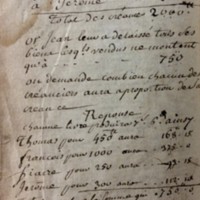 a Jerome
Total des créances 2000
or Jean leur a delaissé tous ses
biens lesqls vendus ne montent
qu'à 750
on demande combien chacun des
creanciers aura a proportion de sa
creance
Reponse
chacune livre produira 7s 6d ainsy
Thomas pour 450# aura 168-15
francois pour 1000 aura 375-0
piarre pour 250 aura
Jerome pour 300 aura 112-10
750-0